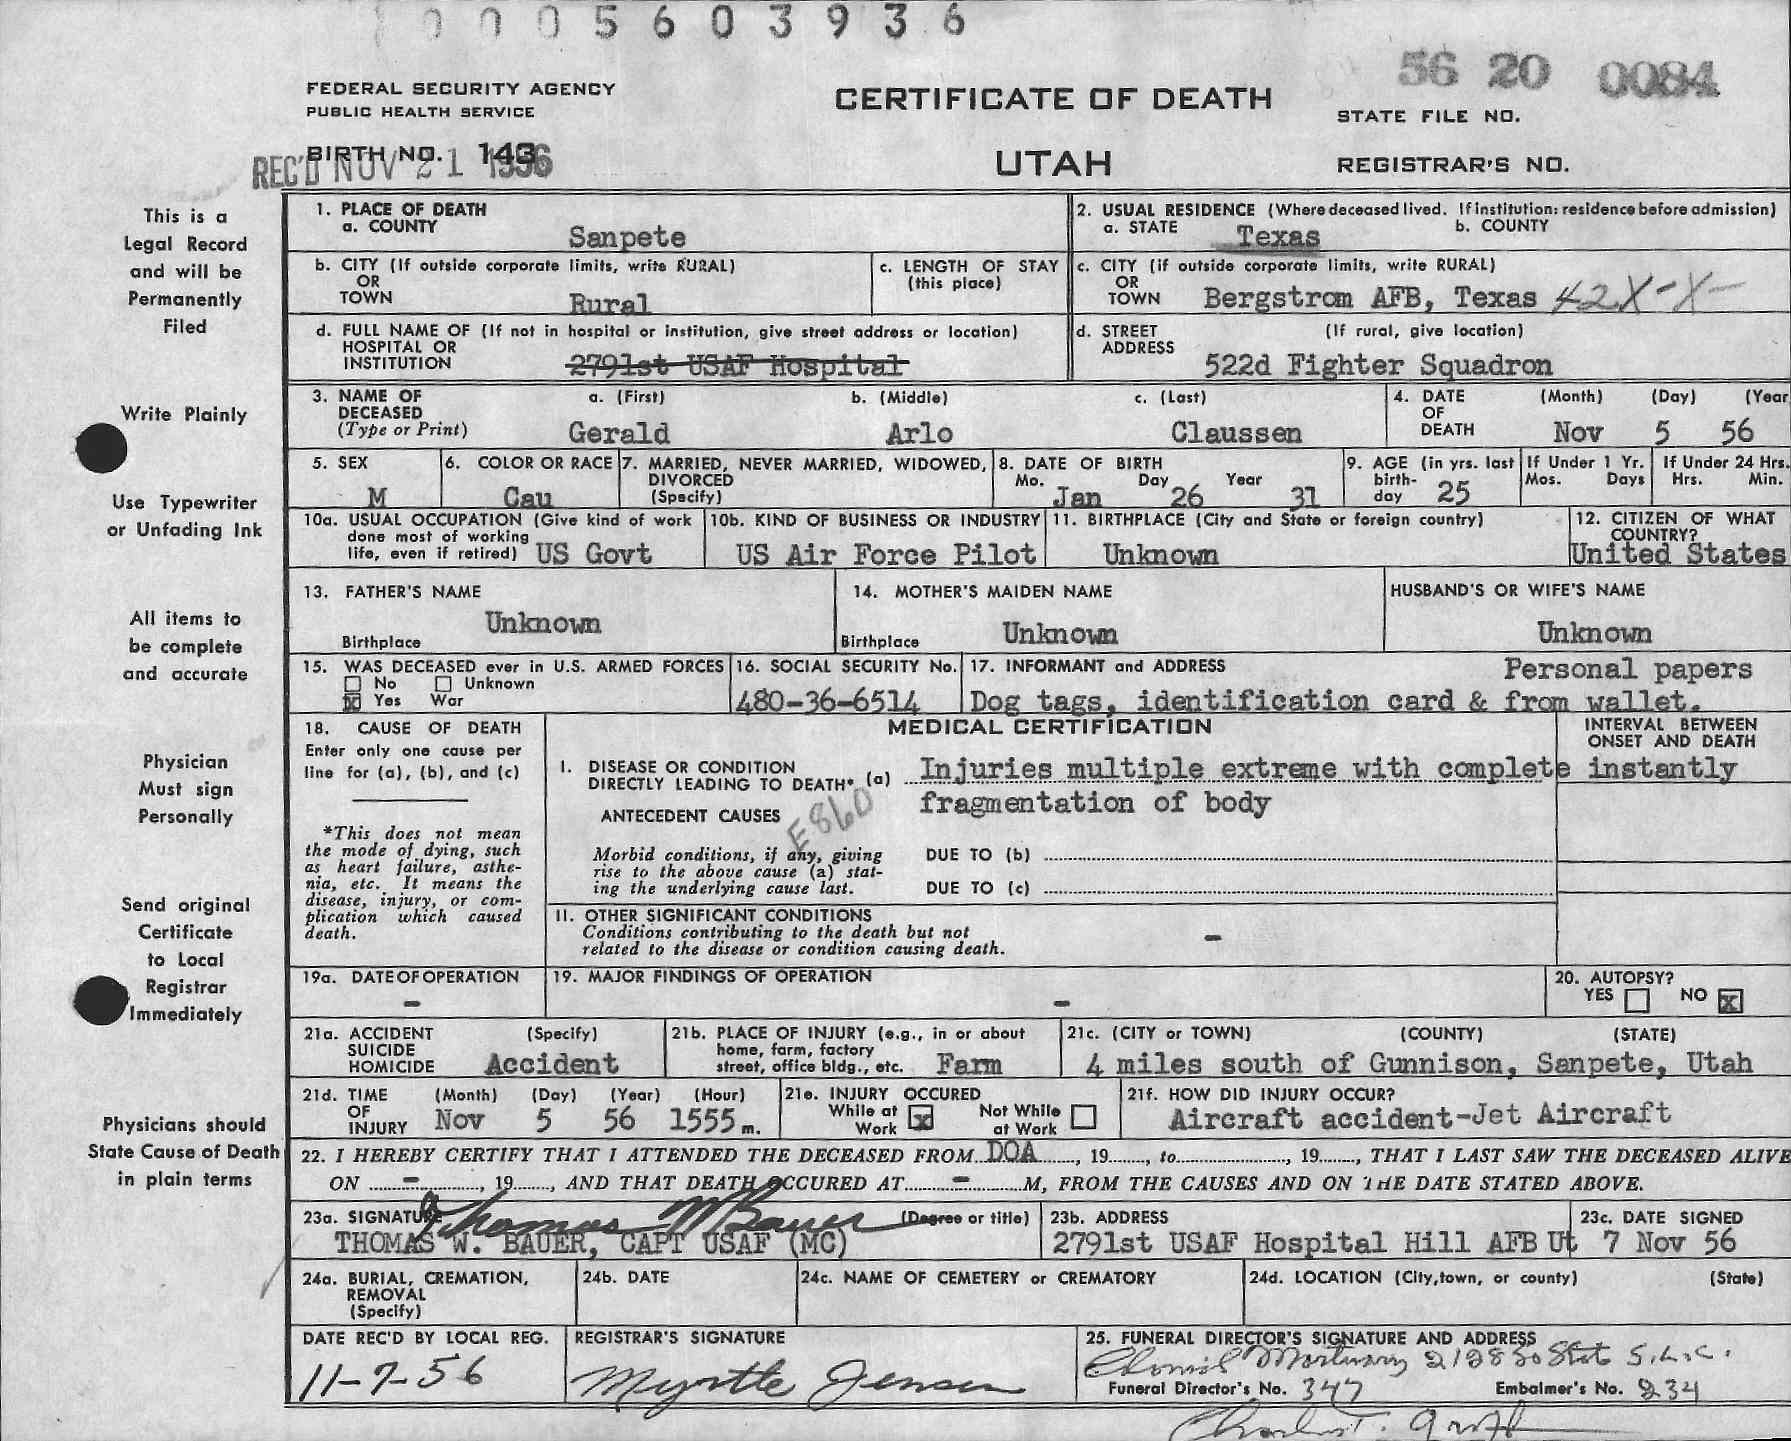 0005603936
56 20 0084
FEDERAL SECURITY AGENCY
PUBLIC HEALTH SERVICE
CERTIFICATE OF DEATH
STATE FILE NO.
BIRTH NO. 143
REC'D NOV 21 1956
UTAH
REGISTRAR'S NO.
This is a
Legal Record
and will be
Permanently
Filed
Write Plainly
Use Typewriter
or Unfading Ink
All items to
be complete
and accurate
Physician
Must sign
Personally
Send original
Certificate
to Local
Registrar
Immediately
Physicians should
State Cause of Death
in plain terms
1. PLACE OF DEATH
a. COUNTY
Sanpete
2. USUAL RESIDENCE (Where deceased lived. If institution: residence before admission)
a. STATE Texas b. COUNTY
b. CITY (If outside corporate limits, write RURAL)
OR
TOWN Rural
c. LENGTH OF STAY
(this place)
c. CITY (if outside corporate limits, write RURAL)
OR
TOWN Bergstrom AFB, Texas 42X-X-
d. FULL NAME OF (If not in hospital or institution, give street address or location)
HOSPITAL OR
INSTITUTION 2791st USAF Hospital
d. STREET (If rural, give location)
ADDRESS
522d Fighter Squadron
3. NAME OF DECEASED
(Type or Print)
a. (First) b. (Middle) c. (Last)
Gerald Arlo Claussen
4. DATE OF DEATH (Month) (Day) (Year
Nov 5 56
5. SEX
M
6. COLOR OR RACE
Cau
7. MARRIED, NEVER MARRIED, WIDOWED,
DIVORCED
(Specify)
8. DATE OF BIRTH
Mo. Day Year
Jan 26 31
9. AGE (in yrs. last
birth-
day 25
If Under 1 Yr.
Mos. Days
If Under 24 Hrs.
Hrs. Min.
10a. USUAL OCCUPATION (Give kind of work
done most of working
life, even if retired) US Govt
10b. KIND OF BUSINESS OR INDUSTRY
US Air Force Pilot
11. BIRTHPLACE (City and State or foreign country)
Unknown
12. CITIZEN OF WHAT
COUNTRY?
United States
13. FATHER'S NAME
Unknown
Birthplace
14. MOTHER'S MAIDEN NAME
Unknown
Birthplace
HUSBAND'S OR WIFE'S NAME
Unknown
15. WAS DECEASED ever in U.S. ARMED FORCES
No Unknown
x Yes War
16. SOCIAL SECURITY No.
480-36-6514
17. INFORMANT and ADDRESS Personal papers
Dog tags, identification card & from wallet.
18. CAUSE OF DEATH
Enter only one cause per
line for (a), (b), and (c)
*This does not mean
the mode of dying, such
as heart failure, asthe-
nia, etc. It means the
disease, injury, or com-
plication which caused
death.
MEDICAL CERTIFICATION
INTERVAL BETWEEN
ONSET AND DEATH
I. DISEASE OR CONDITION
DIRECTLY LEADING TO DEATH* (a) Injuries multiple extreme with complete instantly
fragmentation of body
ANTECEDENT CAUSES
E860
Morbid conditions, if any, giving
rise to the above cause (a) stat-
ing the underlying cause last.
DUE TO (b)
DUE TO (c)
II. OTHER SIGNIFICANT CONDITIONS
Conditions contributing to the death but not
related to the disease or condition causing death.
-
19a. DATE OF OPERATION
-
19. MAJOR FINDINGS OF OPERATION
-
20. AUTOPSY?
YES NO x
21a. ACCIDENT (Specify)
SUICIDE
HOMICIDE Accident
21b. PLACE OF INJURY (e.g., in or about
home, farm, factory
street, office bldg., etc. Farm
21c. (CITY or TOWN) (COUNTY) (STATE)
4 miles south of Gunnison, Sanpete, Utah
21d. TIME OF INJURY (Month) (Day) (Year) (Hour)
Nov 5 56 1555 m.
21e. INJURY OCCURED
While at Work x Not While at Work
21f. HOW DID INJURY OCCUR?
Aircraft accident-Jet Aircraft
22. I HEREBY CERTIFY THAT I ATTENDED THE DECEASED FROM DOA, 19....., to............, 19....., THAT I LAST SAW THE DECEASED ALIVE
ON - , 19....., AND THAT DEATH OCCURED AT - M, FROM THE CAUSES AND ON THE DATE STATED ABOVE.
23a. SIGNATURE Thomas W Bauer (Degree or title)
THOMAS W. BAUER, CAPT USAF (MC)
23b. ADDRESS
2791st USAF Hospital Hill AFB Ut
23c. DATE SIGNED
7 Nov 56
24a. BURIAL, CREMATION,
REMOVAL
(Specify)
24b. DATE
24c. NAME OF CEMETERY or CREMATORY
24d. LOCATION (City, town, or county) (State)
DATE REC'D BY LOCAL REG.
11-7-56
REGISTRAR'S SIGNATURE
Myrtle Jensen
25. FUNERAL DIRECTOR'S SIGNATURE AND ADDRESS
Mortuary 2128 So State S.L.C.
Funeral Director's No. 347 Embalmer's No. 234